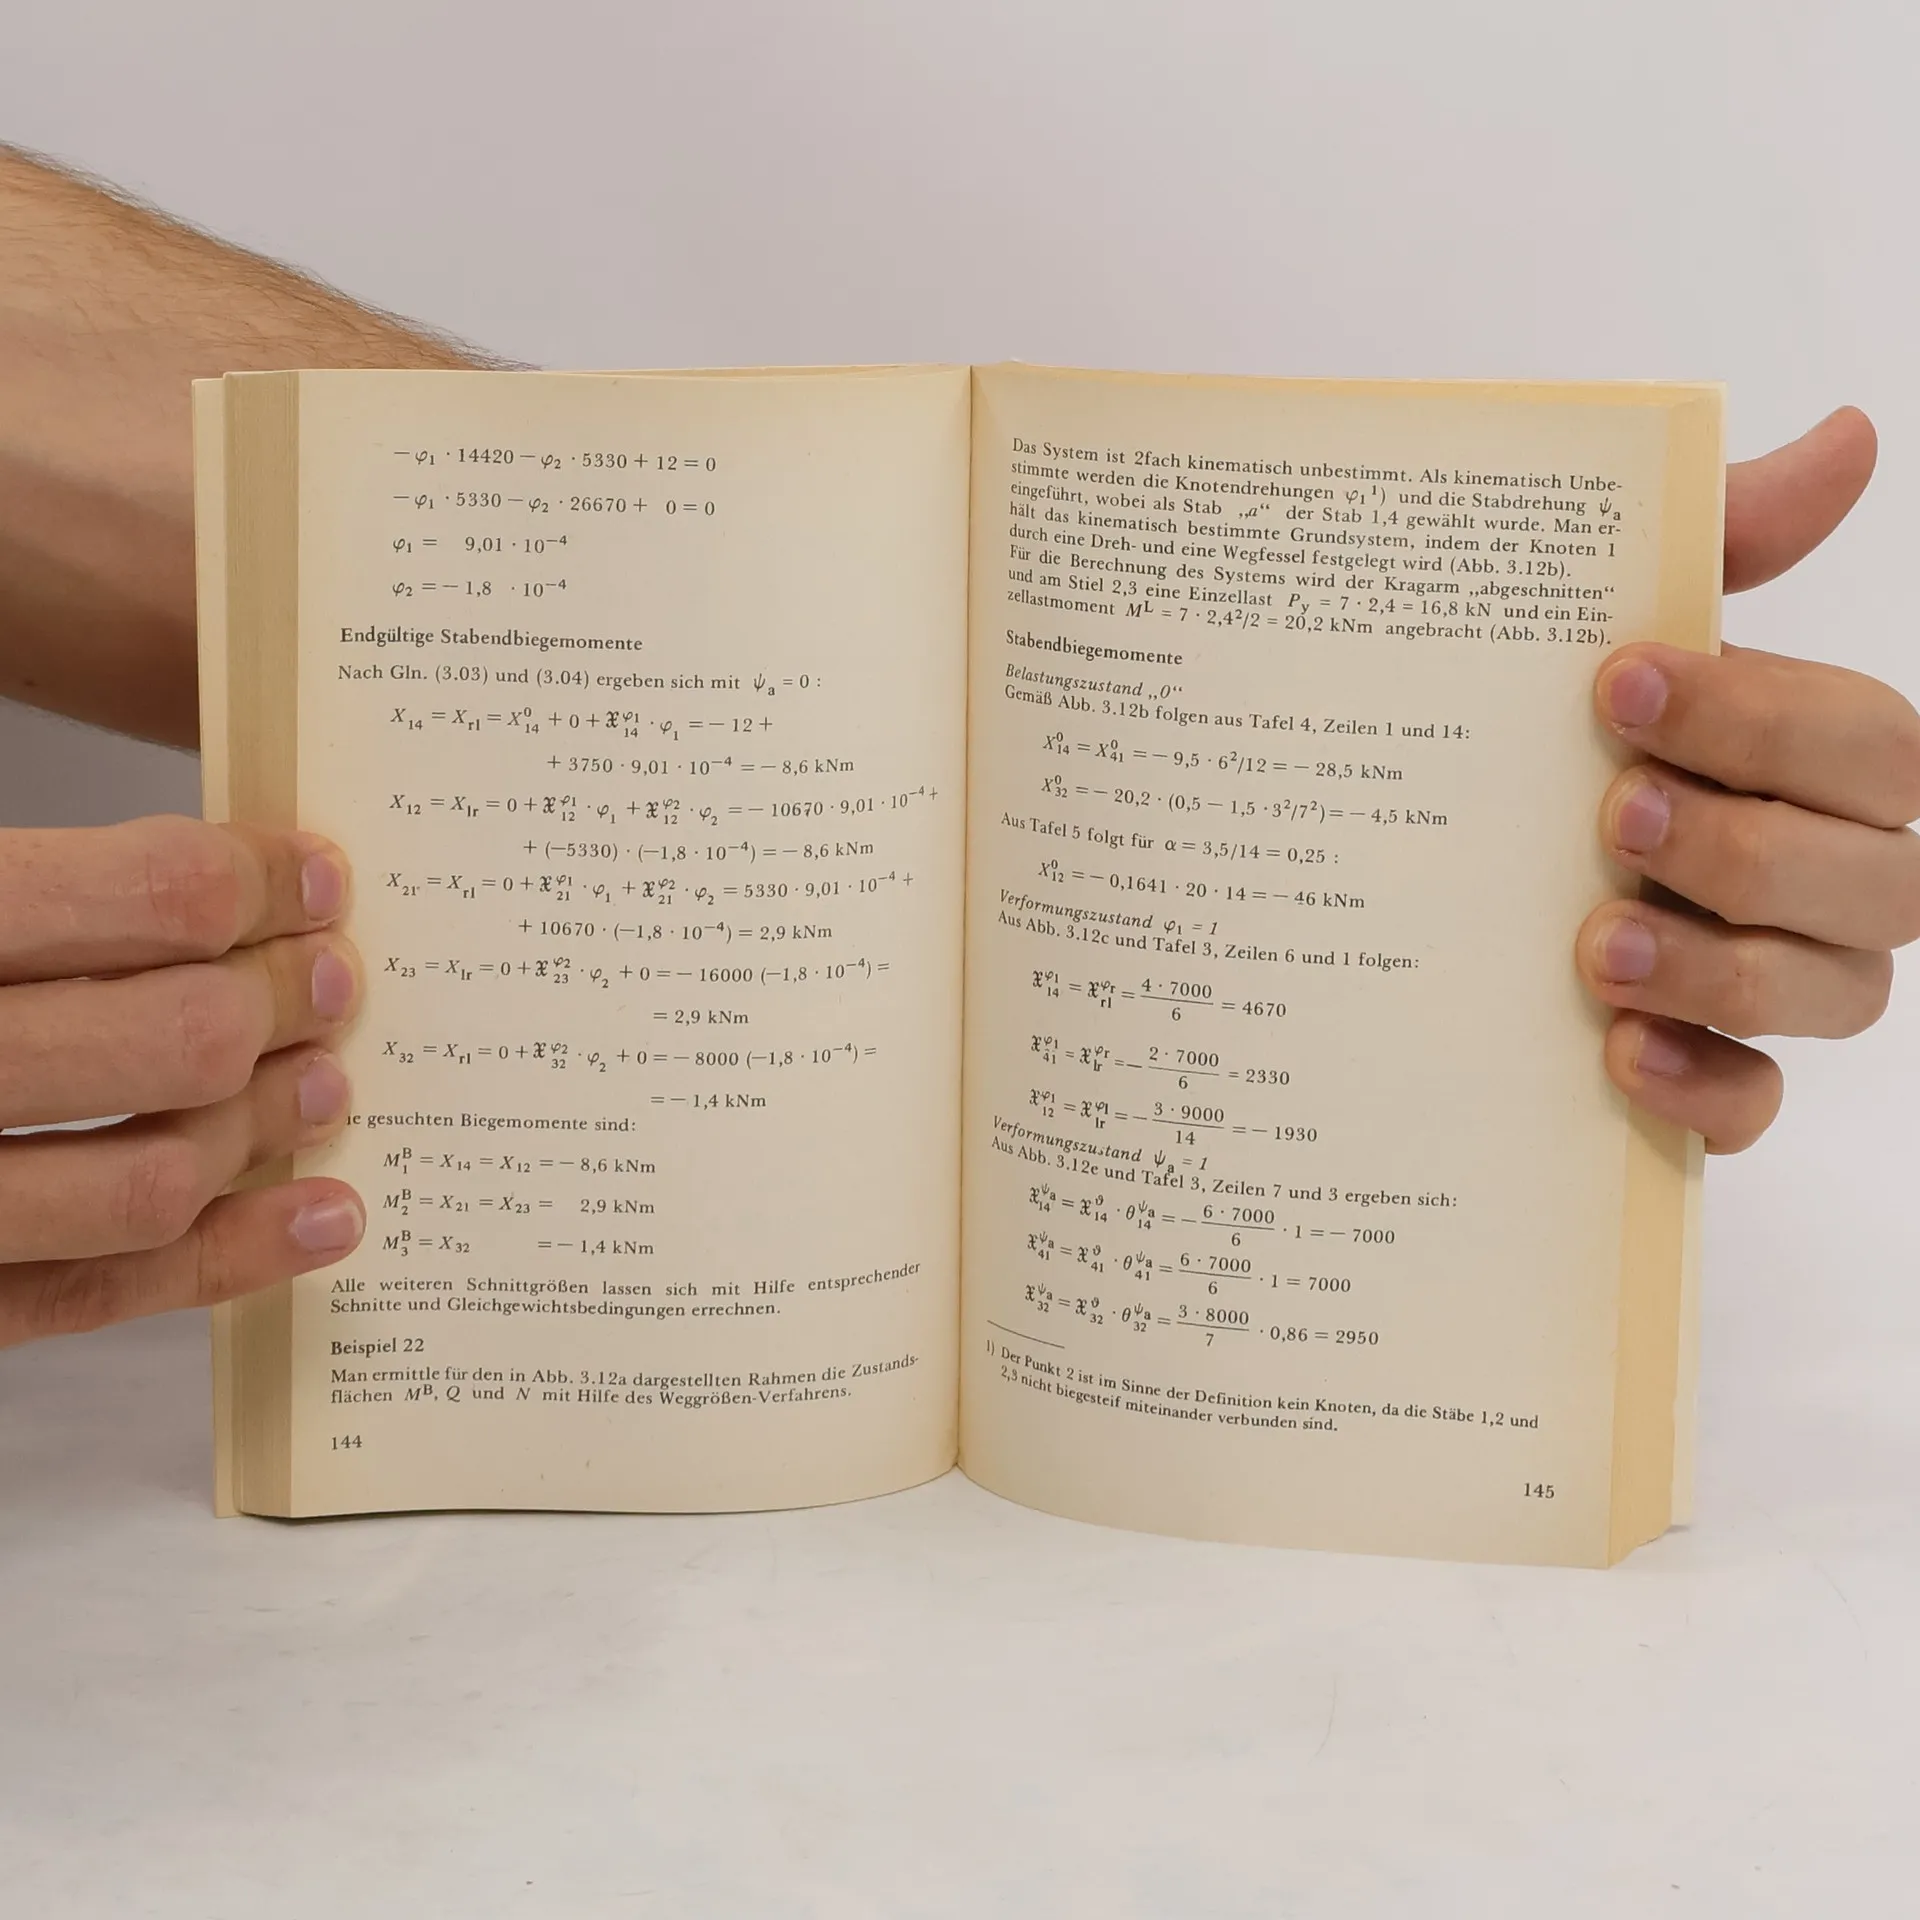 −φ₁ · 14420 − φ₂ · 5330 + 12 = 0
−φ₁ · 5330 − φ₂ · 26670 + 0 = 0
φ₁ = 9,01 · 10⁻⁴
φ₂ = − 1,8 · 10⁻⁴
Endgültige Stabendbiegemomente
Nach Gln. (3.03) und (3.04) ergeben sich mit ψₐ = 0 :
X₁₄ = X_rl = X⁰₁₄ + 0 + 𝔛^φ₁₁₄ · φ₁ = − 12 +
+ 3750 · 9,01 · 10⁻⁴ = − 8,6 kNm
X₁₂ = X_lr = 0 + 𝔛^φ₁₁₂ · φ₁ + 𝔛^φ₂₁₂ · φ₂ = − 10670 · 9,01 · 10⁻⁴ +
+ (−5330) · (−1,8 · 10⁻⁴) = − 8,6 kNm
X₂₁ = X_rl = 0 + 𝔛^φ₁₂₁ · φ₁ + 𝔛^φ₂₂₁ · φ₂ = 5330 · 9,01 · 10⁻⁴ +
+ 10670 · (−1,8 · 10⁻⁴) = 2,9 kNm
X₂₃ = X_lr = 0 + 𝔛^φ₂₂₃ · φ₂ + 0 = − 16000 (−1,8 · 10⁻⁴) =
= 2,9 kNm
X₃₂ = X_rl = 0 + 𝔛^φ₂₃₂ · φ₂ + 0 = − 8000 (−1,8 · 10⁻⁴) =
= − 1,4 kNm
gesuchten Biegemomente sind:
M₁ᴮ = X₁₄ = X₁₂ = − 8,6 kNm
M₂ᴮ = X₂₁ = X₂₃ = 2,9 kNm
M₃ᴮ = X₃₂ = − 1,4 kNm
Alle weiteren Schnittgrößen lassen sich mit Hilfe entsprechender
Schnitte und Gleichgewichtsbedingungen errechnen.
Beispiel 22
Man ermittle für den in Abb. 3.12a dargestellten Rahmen die Zustands-
flächen Mᴮ, Q und N mit Hilfe des Weggrößen-Verfahrens.
144
Das System ist 2fach kinematisch unbestimmt. Als kinematisch Unbe-
stimmte werden die Knotendrehungen φ₁ ¹) und die Stabdrehung ψₐ
eingeführt, wobei als Stab „a“ der Stab 1,4 gewählt wurde. Man er-
hält das kinematisch bestimmte Grundsystem, indem der Knoten 1
durch eine Dreh- und eine Wegfessel festgelegt wird (Abb. 3.12b).
Für die Berechnung des Systems wird der Kragarm „abgeschnitten“
und am Stiel 2,3 eine Einzellast P_y = 7 · 2,4 = 16,8 kN und ein Ein-
zellastmoment Mᴸ = 7 · 2,4²/2 = 20,2 kNm angebracht (Abb. 3.12b).
Stabendbiegemomente
Belastungszustand „0“
Gemäß Abb. 3.12b folgen aus Tafel 4, Zeilen 1 und 14:
X⁰₁₄ = X⁰₄₁ = − 9,5 · 6²/12 = − 28,5 kNm
X⁰₃₂ = − 20,2 · (0,5 − 1,5 · 3²/7²) = − 4,5 kNm
Aus Tafel 5 folgt für α = 3,5/14 = 0,25 :
X⁰₁₂ = − 0,1641 · 20 · 14 = − 46 kNm
Verformungszustand φ₁ = 1
Aus Abb. 3.12c und Tafel 3, Zeilen 6 und 1 folgen:
𝔛^φ₁₁₄ = 𝔛^φr_rl = 4 · 7000 / 6 = 4670
𝔛^φ₁₄₁ = 𝔛^φr_lr = − 2 · 7000 / 6 = 2330
𝔛^φ₁₁₂ = 𝔛^φl_lr = − 3 · 9000 / 14 = − 1930
Verformungszustand ψₐ = 1
Aus Abb. 3.12e und Tafel 3, Zeilen 7 und 3 ergeben sich:
𝔛^ψₐ₁₄ = 𝔛^ϑ₁₄ · θ^ψₐ₁₄ = − 6 · 7000 / 6 · 1 = − 7000
𝔛^ψₐ₄₁ = 𝔛^ϑ₄₁ · θ^ψₐ₄₁ = 6 · 7000 / 6 · 1 = 7000
𝔛^ψₐ₃₂ = 𝔛^ϑ₃₂ · θ^ψₐ₃₂ = 3 · 8000 / 7 · 0,86 = 2950
1) Der Punkt 2 ist im Sinne der Definition kein Knoten, da die Stäbe 1,2 und
2,3 nicht biegesteif miteinander verbunden sind.
145